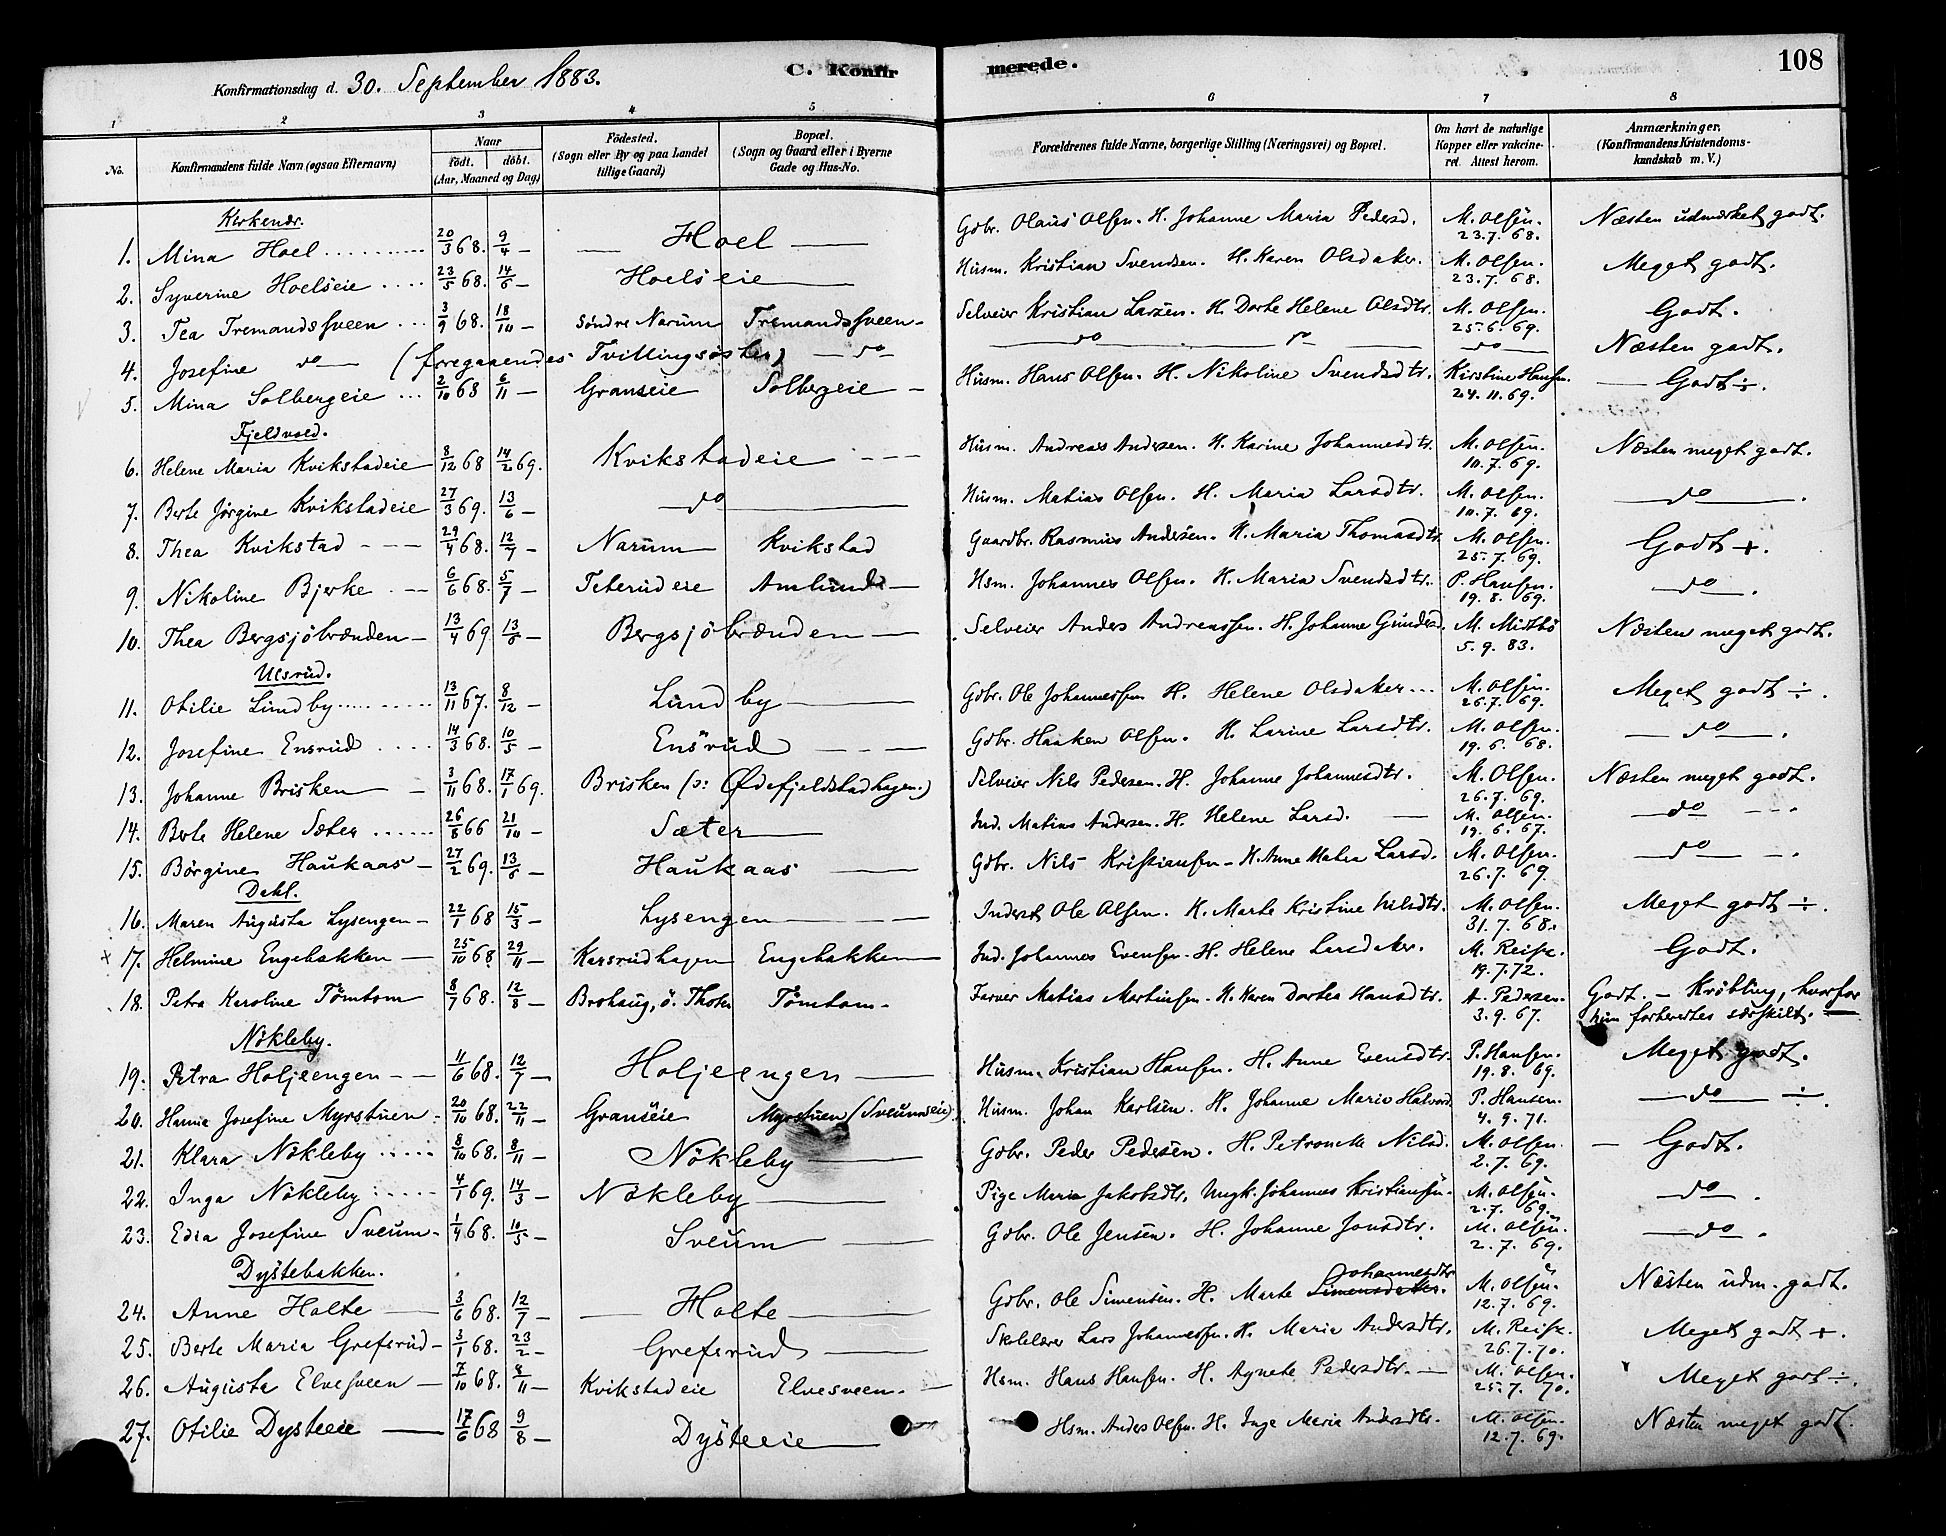 Konfirmationsdag d. 30. September 1883. C. Konfirmerede. 108
1 2 3 4 5 6 7 8
No. Konfirmandens fulde Navn (ogsaa Efternavn) Naar født. døbt. (Aar, Maaned og Dag) Fødested. (Sogn eller By og paa Landet tillige Gaard) Bopæl. (Sogn og Gaard eller i Byerne Gade og Hus-No. Forældrenes fulde Navne, borgerlige Stilling (Næringsvei) og Bopæl. Om havt de naturlige Kopper eller vakcineret. Attest herom. Anmærkninger. (Konfirmandens Kristendomskundskab m. V.)
Kirkenær.
1. Mina Hoel 20/3 68. 9/4 — Hoel — Gdbr. Olaus Olsen. H. Johanne Maria Pedersd. M. Olsen. 23.7.68. Næsten udmærket godt.
2. Syverine Hoelseie 23/5 68. 14/6 — Hoelseie — Husm. Kristian Svendsen. H. Karen Olsdaker. M. Olsen. 23.7.68. Meget godt.
3. Tea Tremandssveen 3/9 68. 18/10 — Søndre Narum Tremandssveen — Selveier Kristian Larsen. H. Dorte Helene Olsdtr. M. Olsen. 25.6.69. Godt.
4. Josefine do — (foregaaendes Tvillingsøster) — do — do — do — do — Næsten godt.
5. Mina Solbergeie 2/10 68 6/11 — Granseie Solbergeie — Husm. Hans Olsen. H. Nikoline Svendsdtr. Kirstine Hansen. 24.11.69. — Godt ÷.
Fjeldvold.
6. Helene Maria Kvikstadeie 8/12 68 14/2 69. Kvikstadeie — Husm. Andreas Andersen. H. Karine Johannesdtr. M. Olsen. 10.7.69. Næsten meget godt.
7. Berte Jørgine Kvikstadeie 27/3 69. 13/6 — do — Husm. Matias Olsen. H. Maria Larsdtr. M. Olsen. 10.7.69. — do — .
8. Thea Kvikstad — 29/4 68. 12/7 — Narum Kvikstad Gaardbr. Rasmus Andersen. H. Maria Thomasdtr M. Olsen. 25.7.69. Godt +.
9. Nikoline Bjerke — 6/6 68. 5/7 — Teterudeie Amlund — Hsm. Johannes Olsen. H. Maria Svendsdtr. P. Hansen. 19.8.69. — do — .
10. Thea Bergsjøbrænden — 13/4 69 13/6 — Bergsjøbrænden — Selveier Anders Andreassen. H. Johanne Gundersd. M. 5.9.83. Næsten meget godt.
Ulsrud.
11. Otilie Lundby 13/11 67. 8/12 — Lundby — Gdbr. Ole Johannessen H. Helene Olsdaker M. Olsen. 26.7.69. Meget godt ÷.
12. Josefine Ensrud 14/3 68. 10/5 — Ensrud — Gdbr. Haaken Olsen. H. Larine Larsdtr. M. Olsen. 19.6.68. — do — .
13. Johanne Brisken — 3/11 68. 17/1 69. Brisken (ɔ: Ødefjeldstadhagen.) Selveier Nils Pedersen. H. Johanne Johannesdtr. M. Olsen. 26.7.69. Næsten meget godt.
14. Berte Helene Sæter 26/8 66 21/10 — Sæter — Ind. Matias Andersen. H. Helene Larsd. — M. Olsen. 19.6.67. — do — .
15. Børgine Haukaas — 27/2 69. 13/6 — Haukaas — Gdbr. Nils Kristiansen — H. Anne Maria Larsd. M. Olsen. 26.7.69. — do — .
Dahl.
16. Maren Augusta Lysengen — 22/1 68 15/3 — Lysengen — Inderst Ole Olsen. H. Marte Kristine Nilsdtr. M. Olsen. 31.7.68. Meget godt ÷.
17. Helmine Engebakken — 25/10 68 29/11 — Karsrudhagen Engebakken — Ind. Johannes Evensen. H. Helene Larsdaker. M. 19.7.72. Godt.
18. Petra Karoline Tømtom 8/7 68. 12/8 — Brohaug, ö. Thoten Tømtom — Farver Matias Martinsen. H. Karen Dortea Hansdtr. A. Pedersen. 3.9.67. Godt. — Krøbling, hvorfor
hun forhørtes særskilt. —
Nökleby.
19. Petra Holjeengen — 11/6 68. 12/7 — Holjeengen — Husm. Kristian Hansen. H. Anne Evensdtr. P. Hansen. 19.8.69. Meget godt.
20. Hanna Josefine Myrstuen 20/10 68. 22/11 — Granseie Myrstuen (Sveumseie) Husm. Johan Karlsen. H. Johanne Marie Halvors. P. Hansen. 4.9.71. — do — ÷.
21. Klara Nökleby 8/10 68. 8/11 — Nökleby — Gdbr. Peder Pedersen. H. Petronelle Nilsd. M. Olsen. 2.7.69. — Godt.
22. Inga Nökleby 4/1 69. 14/3 — Nökleby — Pige Maria Jakobsdtr. Ungk. Johannes Kristiansen. M. Olsen. 2.7.69. — do — .
23. Edia Josefine Sveum — 1/4 68. 10/5 — Sveum — Gdbr. Ole Jensen. H. Johanne Jonsdtr. M. Olsen. 2.7.69. — do — .
Dystebakken.
24. Anne Holte — 3/6 68. 12/7 — Holte — Gdbr. Ole Simensen. H. Marte Simensdatter. Johannesdtr M. Olsen. 12.7.69. Næsten udm. godt.
25. Berte Maria Grefsrud — 3/1 68. 23/2 — Grefsrud — Skolelærer Lars Johannessen. H. Maria Andersdtr. M. 26.7.70. Meget godt +.
26. Augusta Elvesveen — 7/10 68. 8/11 — Kvikstadeie Elvesveen. — Hsm. Hans Hansen. H. Agnete Pedersdtr. — M. Olsen. 25.7.70. Meget godt ÷.
27. Otilie Dysteeie — 17/6 68 9/8 — Dysteeie — Hsm. Anders Olsen. H. Inge Maria Andersdtr. M. Olsen. 12.7.69. Næsten meget godt.